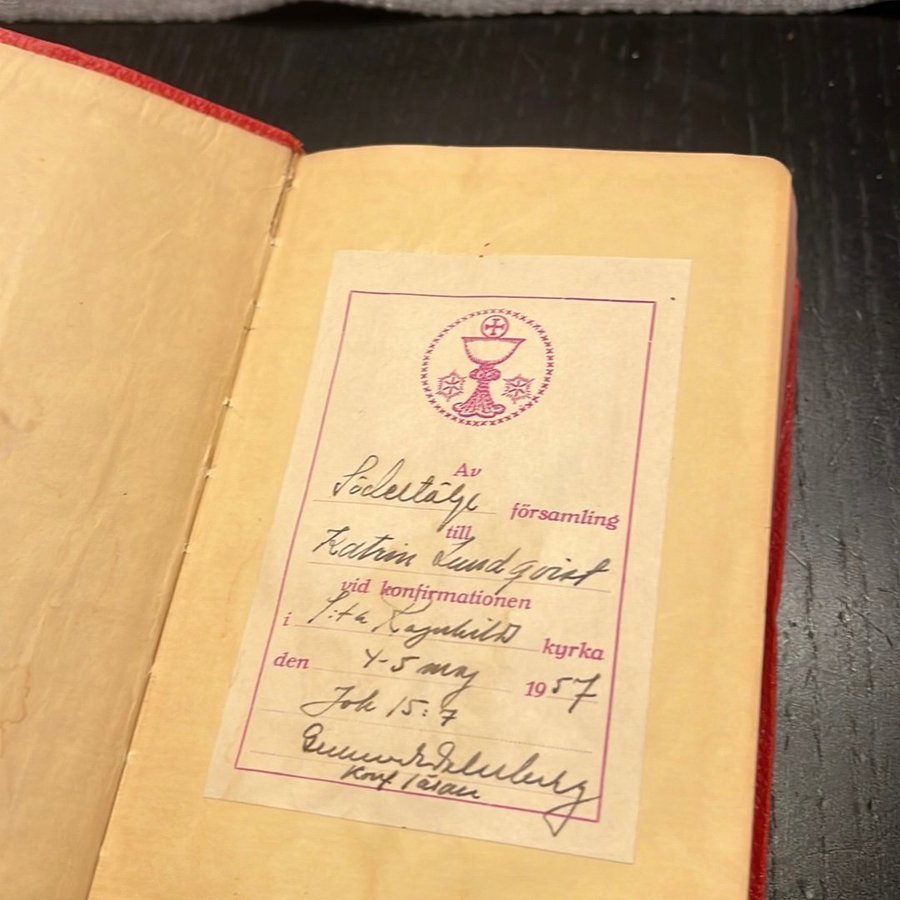 Av
Södertälje församling
till
Katrin Lundqvist
vid konfirmationen
i S:ta Ragnhild kyrka
den 4-5 maj 1957
Joh 15:7
Konf lärare